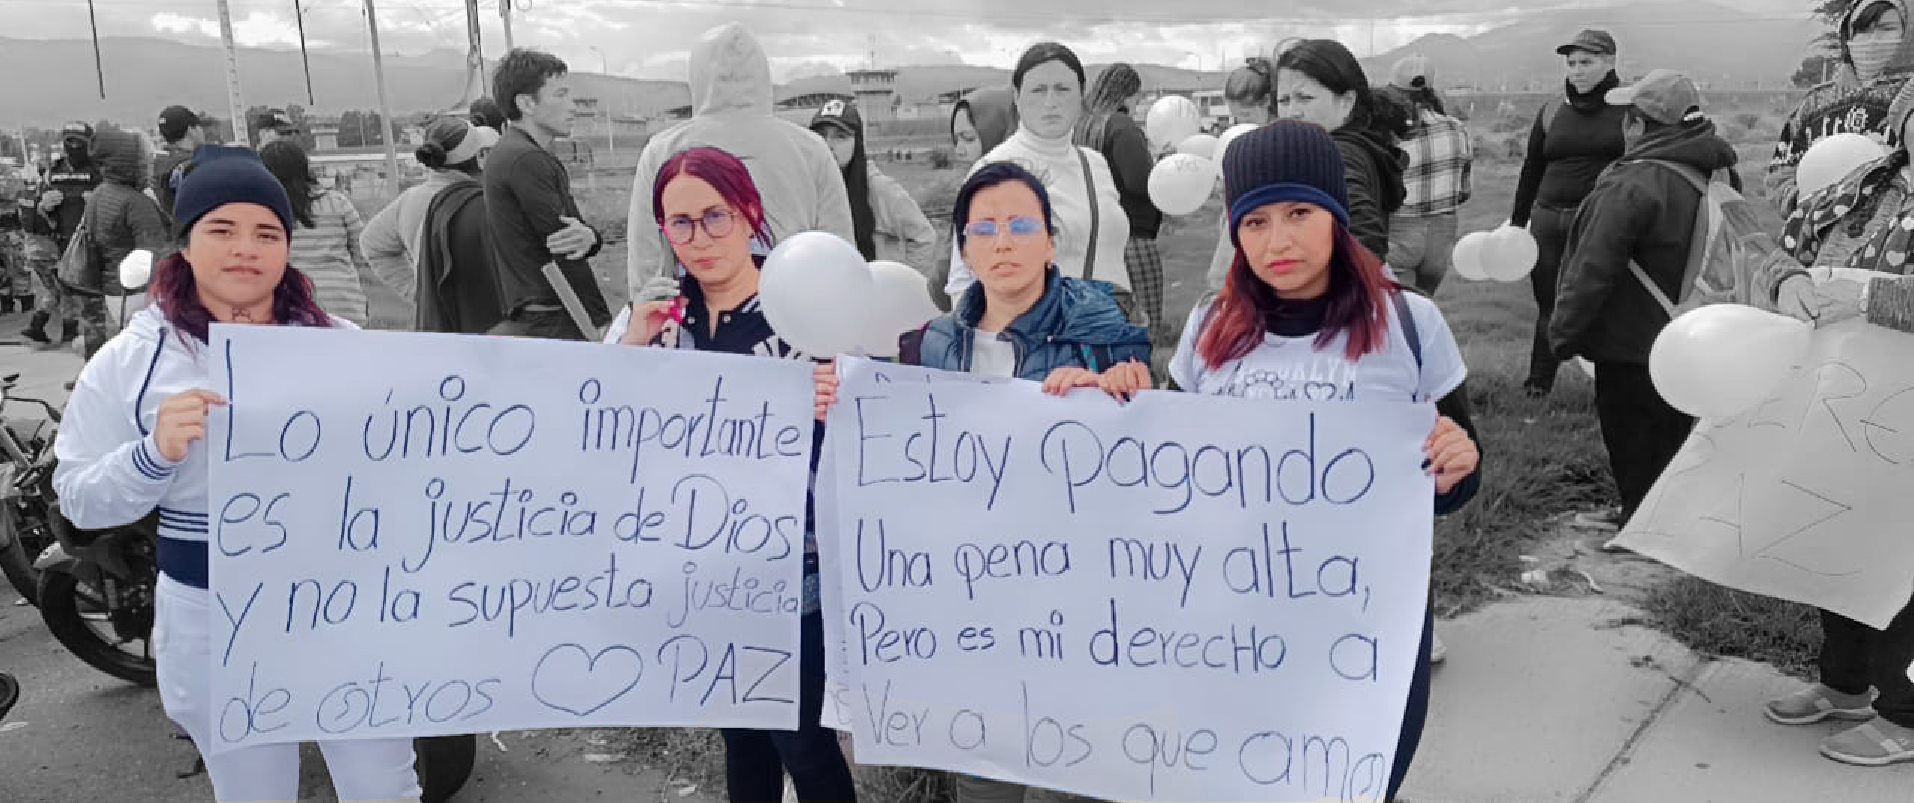 Lo único importante
es la justicia de Dios
y no la supuesta justicia
de otros ♡ PAZ
Estoy pagando
Una pena muy alta,
Pero es mi derecHo a
Ver a los que amo